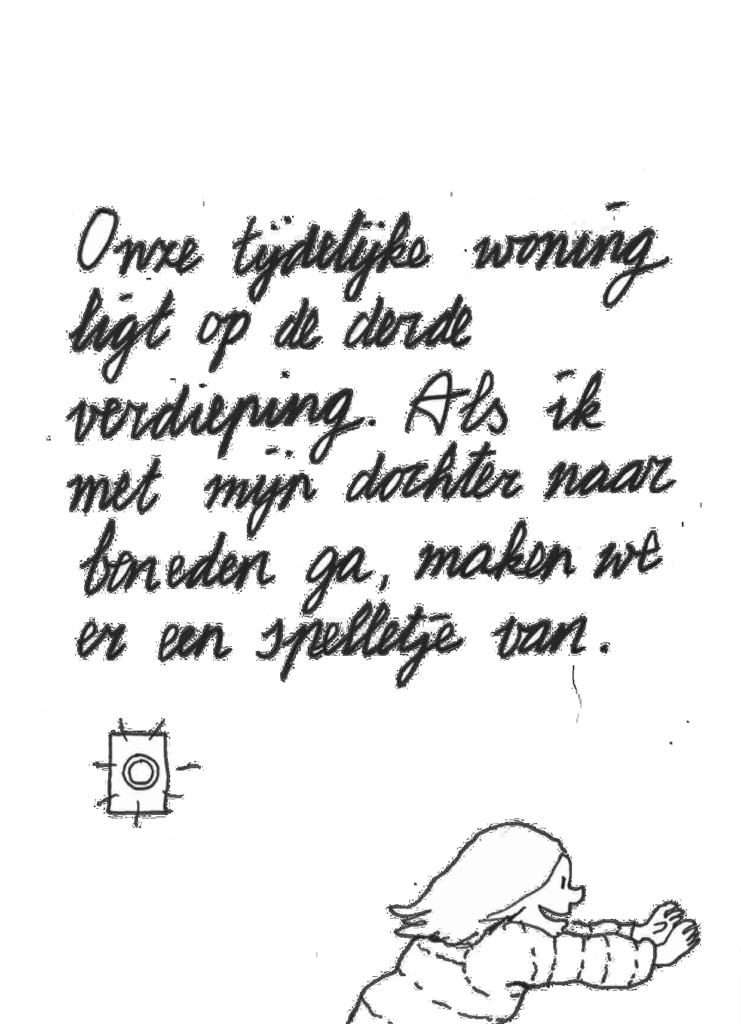 Onze tijdelijke woning
ligt op de derde
verdieping. Als ik
met mijn dochter naar
beneden ga, maken we
er een spelletje van.